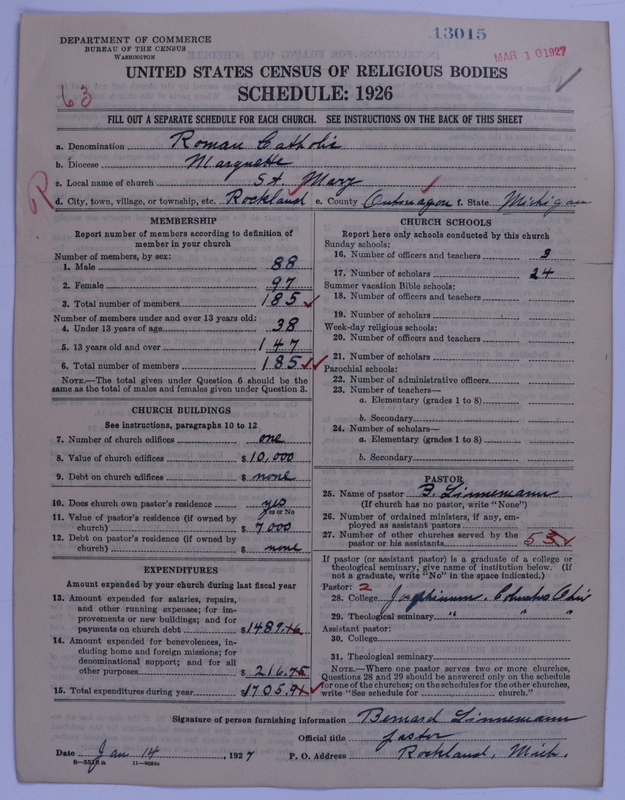 13015
DEPARTMENT OF COMMERCE
BUREAU OF THE CENSUS
WASHINGTON
MAR 10 1927
UNITED STATES CENSUS OF RELIGIOUS BODIES
SCHEDULE: 1926
63
FILL OUT A SEPARATE SCHEDULE FOR EACH CHURCH. SEE INSTRUCTIONS ON THE BACK OF THIS SHEET
a. Denomination Roman Catholic
b. Diocese Marquette
c. Local name of church St. Mary
R
d. City, town, village, or township, etc. Rockland e. County Ontonagon f. State Michigan
MEMBERSHIP
Report number of members according to definition of
member in your church
Number of members, by sex:
1. Male 88
2. Female 97
3. Total number of members 185
Number of members under and over 13 years old:
4. Under 13 years of age 38
5. 13 years old and over 147
6. Total number of members 185
NOTE.—The total given under Question 6 should be the
same as the total of males and females given under Question 3.
CHURCH BUILDINGS
See instructions, paragraphs 10 to 12
7. Number of church edifices one
8. Value of church edifices $10,000
9. Debt on church edifices $ none
10. Does church own pastor's residence yes
Yes or No
11. Value of pastor's residence (if owned by
church) $ 7,000
12. Debt on pastor's residence (if owned by
church) $ none
EXPENDITURES
Amount expended by your church during last fiscal year
13. Amount expended for salaries, repairs,
and other running expenses; for im-
provements or new buildings; and for
payments on church debt $1489.
14. Amount expended for benevolences, in-
cluding home and foreign missions; for
denominational support; and for all
other purposes $ 216.75
15. Total expenditures during year $1705.
CHURCH SCHOOLS
Report here only schools conducted by this church
Sunday schools:
16. Number of officers and teachers 3
17. Number of scholars 24
Summer vacation Bible schools:
18. Number of officers and teachers
19. Number of scholars
Week-day religious schools:
20. Number of officers and teachers
21. Number of scholars
Parochial schools:
22. Number of administrative officers
23. Number of teachers—
a. Elementary (grades 1 to 8)
b. Secondary
24. Number of scholars—
a. Elementary (grades 1 to 8)
b. Secondary
PASTOR
25. Name of pastor B. Linnemann
(If church has no pastor, write "None")
26. Number of ordained ministers, if any, em-
ployed as assistant pastors
27. Number of other churches served by the
pastor or his assistants
If pastor (or assistant pastor) is a graduate of a college or
theological seminary, give name of institution below. (If
not a graduate, write "No" in the space indicated.)
Pastor: 2
28. College Josephinum, Columbus Ohio
29. Theological seminary " " "
Assistant pastor:
30. College
31. Theological seminary
NOTE.—Where one pastor serves two or more churches,
Questions 28 and 29 should be answered only on the schedule
for one of the churches; on the schedules for the other churches,
write "See schedule for church."
Signature of person furnishing information Bernard Linnemann
Official title Pastor
Date Jan 14, 1927 P. O. Address Rockland, Mich.
11—9094